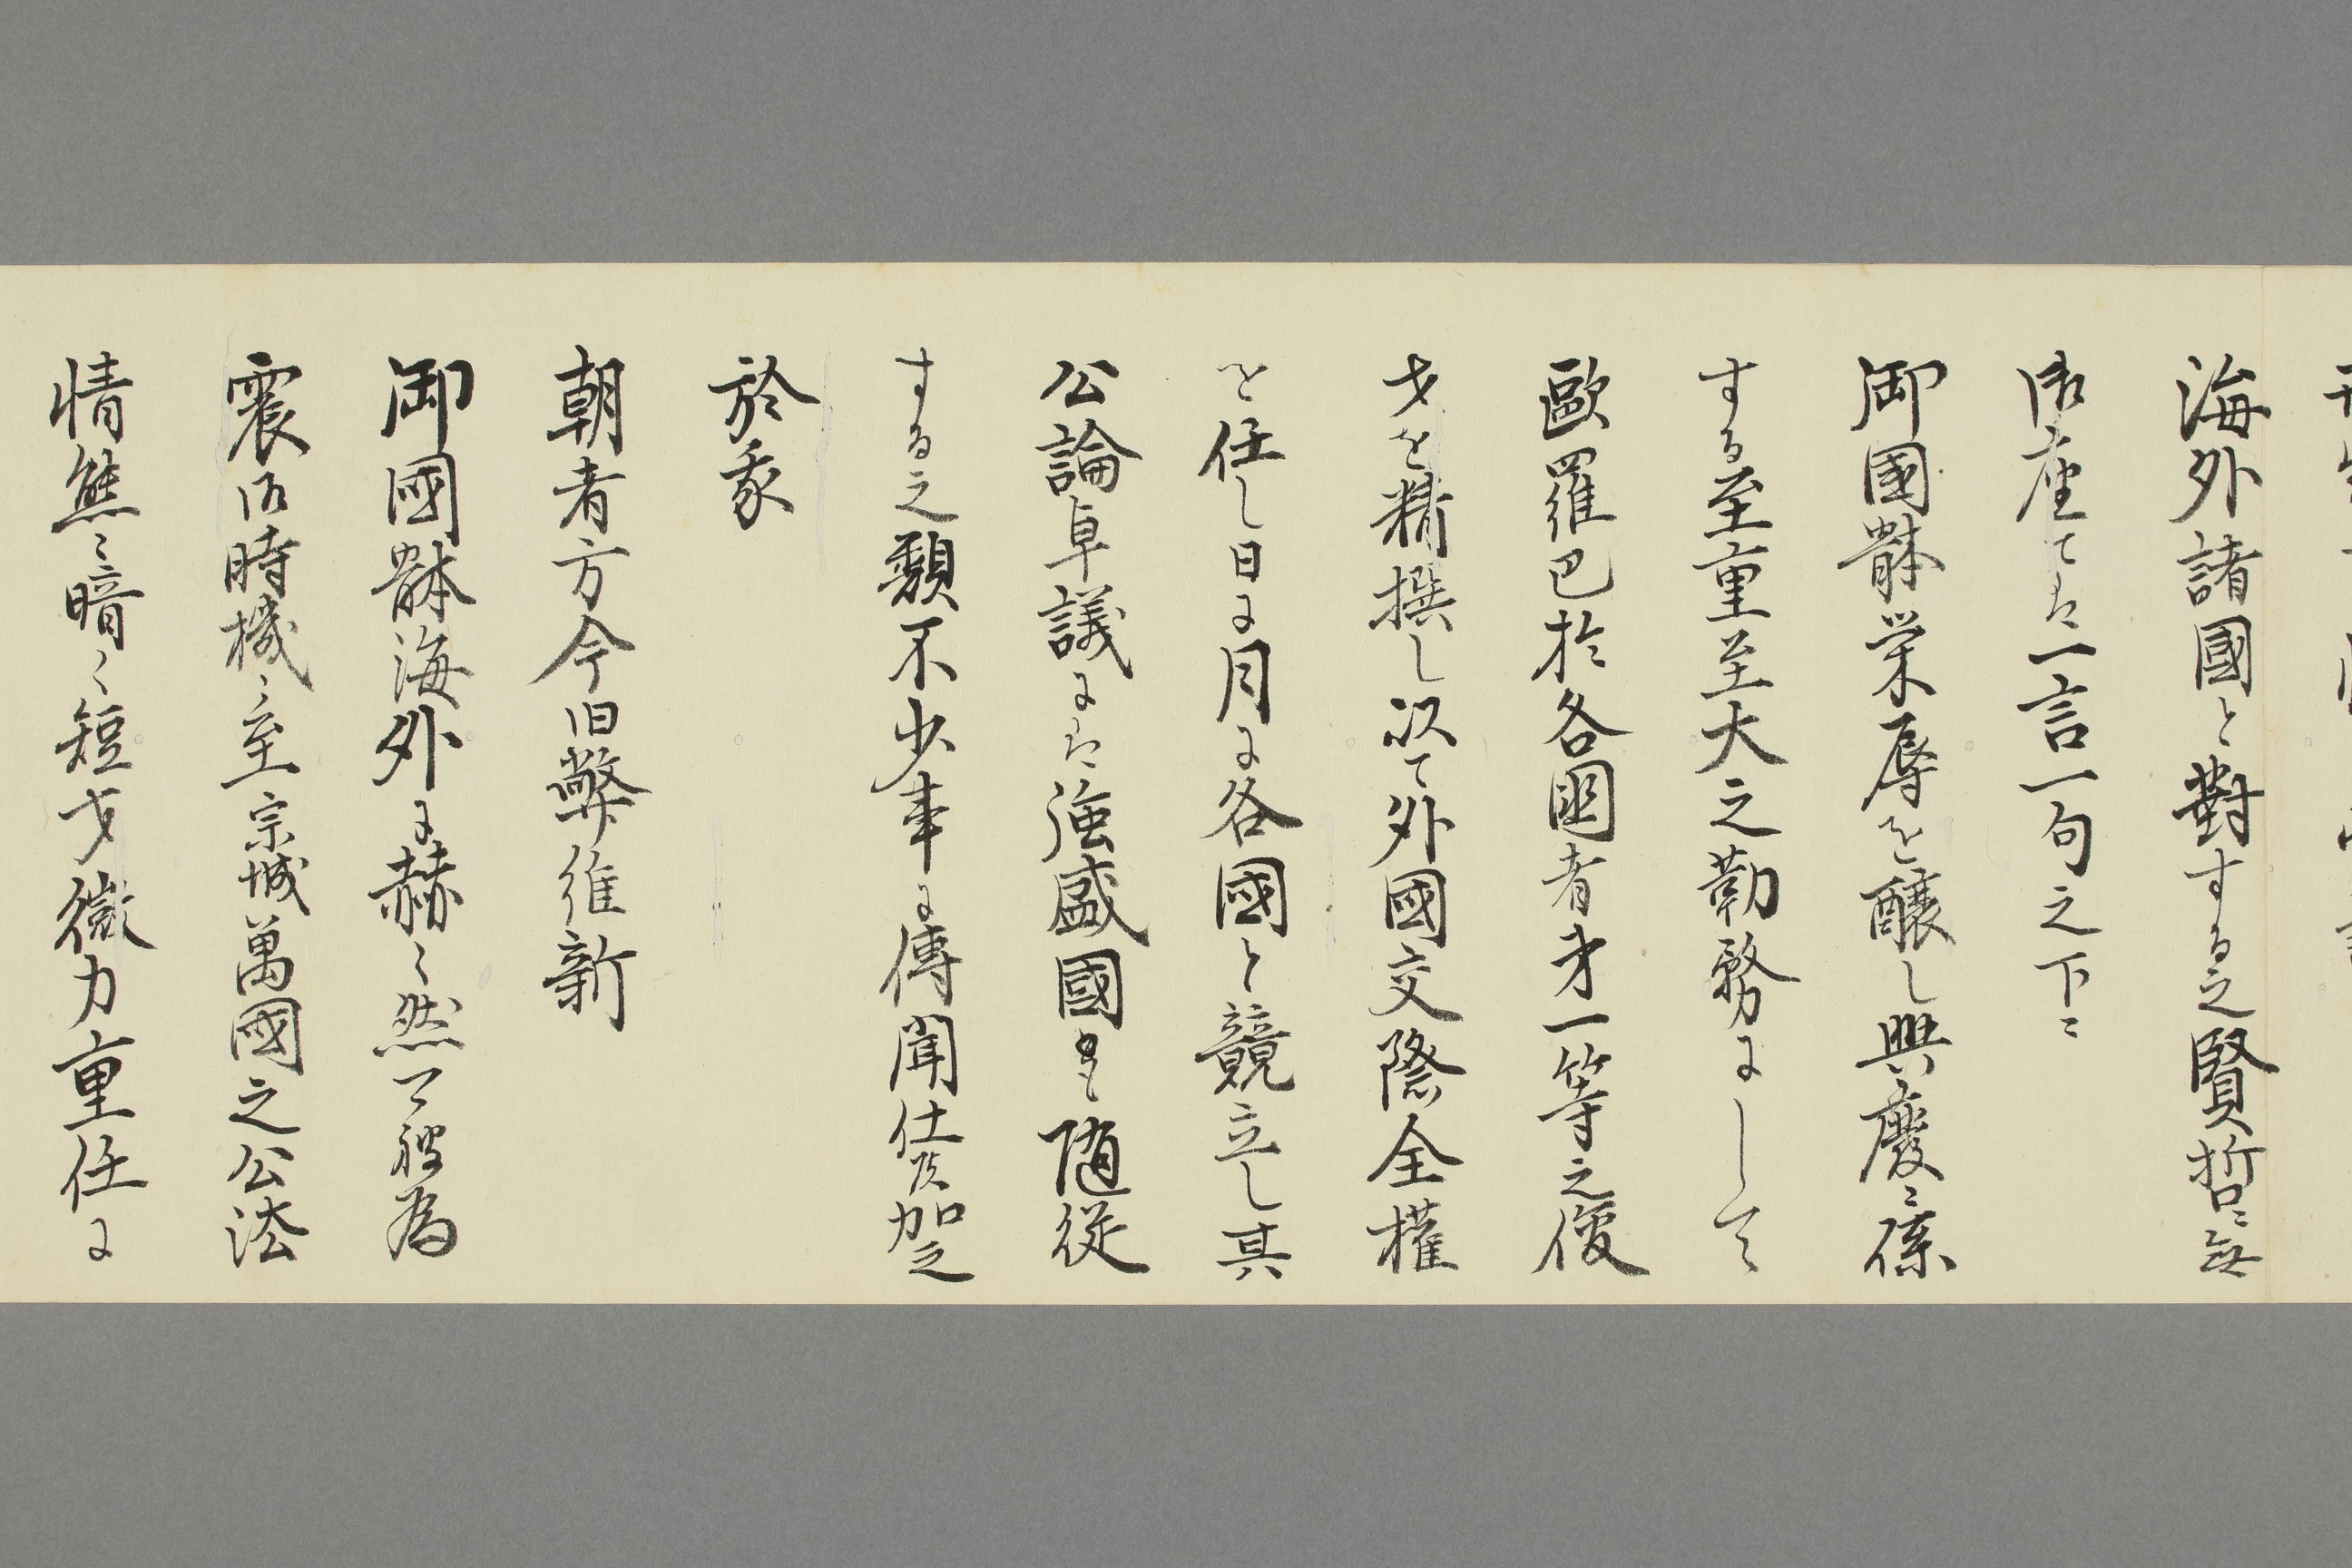 海外諸國と對する之賢哲ニ無
御座てハ一言一句之下ニ
御國躰栄辱を醸し興廢ニ係
する至重至大之勤務にして
歐羅巴於各國者才一等之俊
才を精撰し以て外國交際全權
を任し日に月に各國と競立し其
公論卓議にハ強盛國も随従
する之類不少事に傳聞仕候加之
於我
朝者方今旧弊維新
御國躰海外に赫々然可被為
震御時機ニ至宗城萬國之公法
情態ニ暗く短才微力重任に